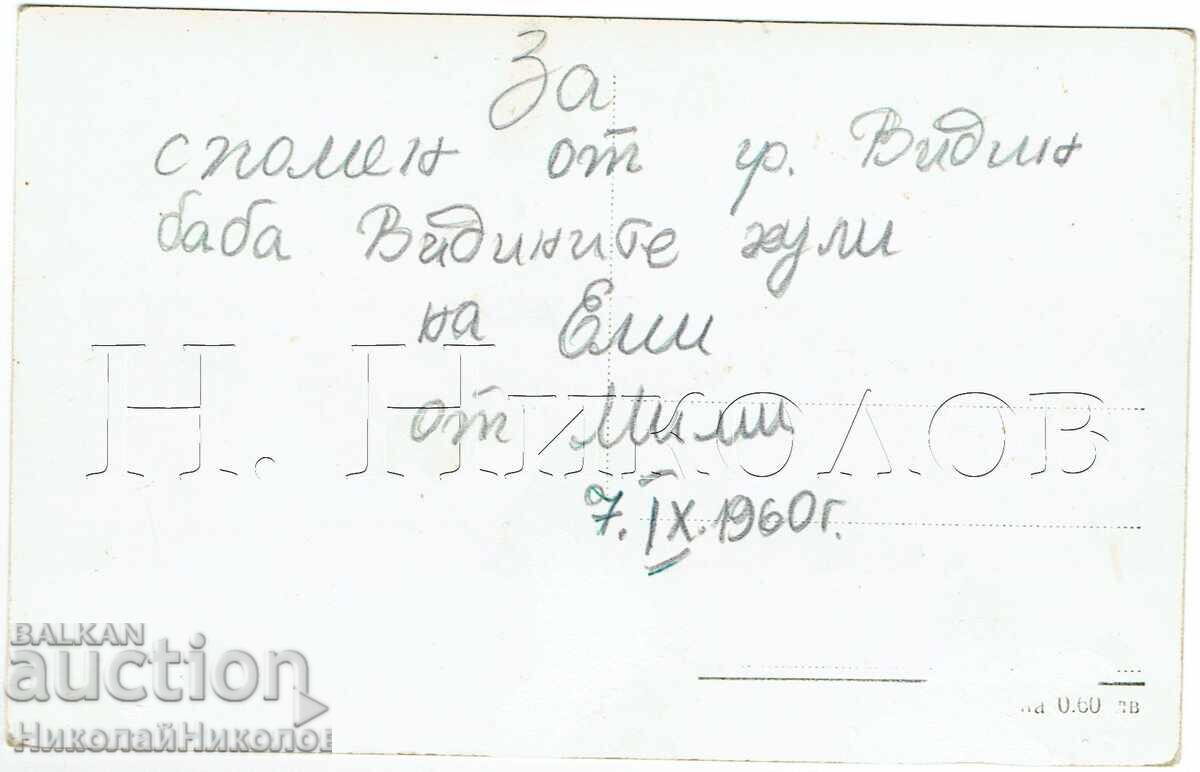 За
спомен от гр. Видин
баба Видините кули
на Ели
от Мими
7. IX. 1960 г.
Н. Николов
BALKAN
auction
НиколайНиколов
на 0.60 лв